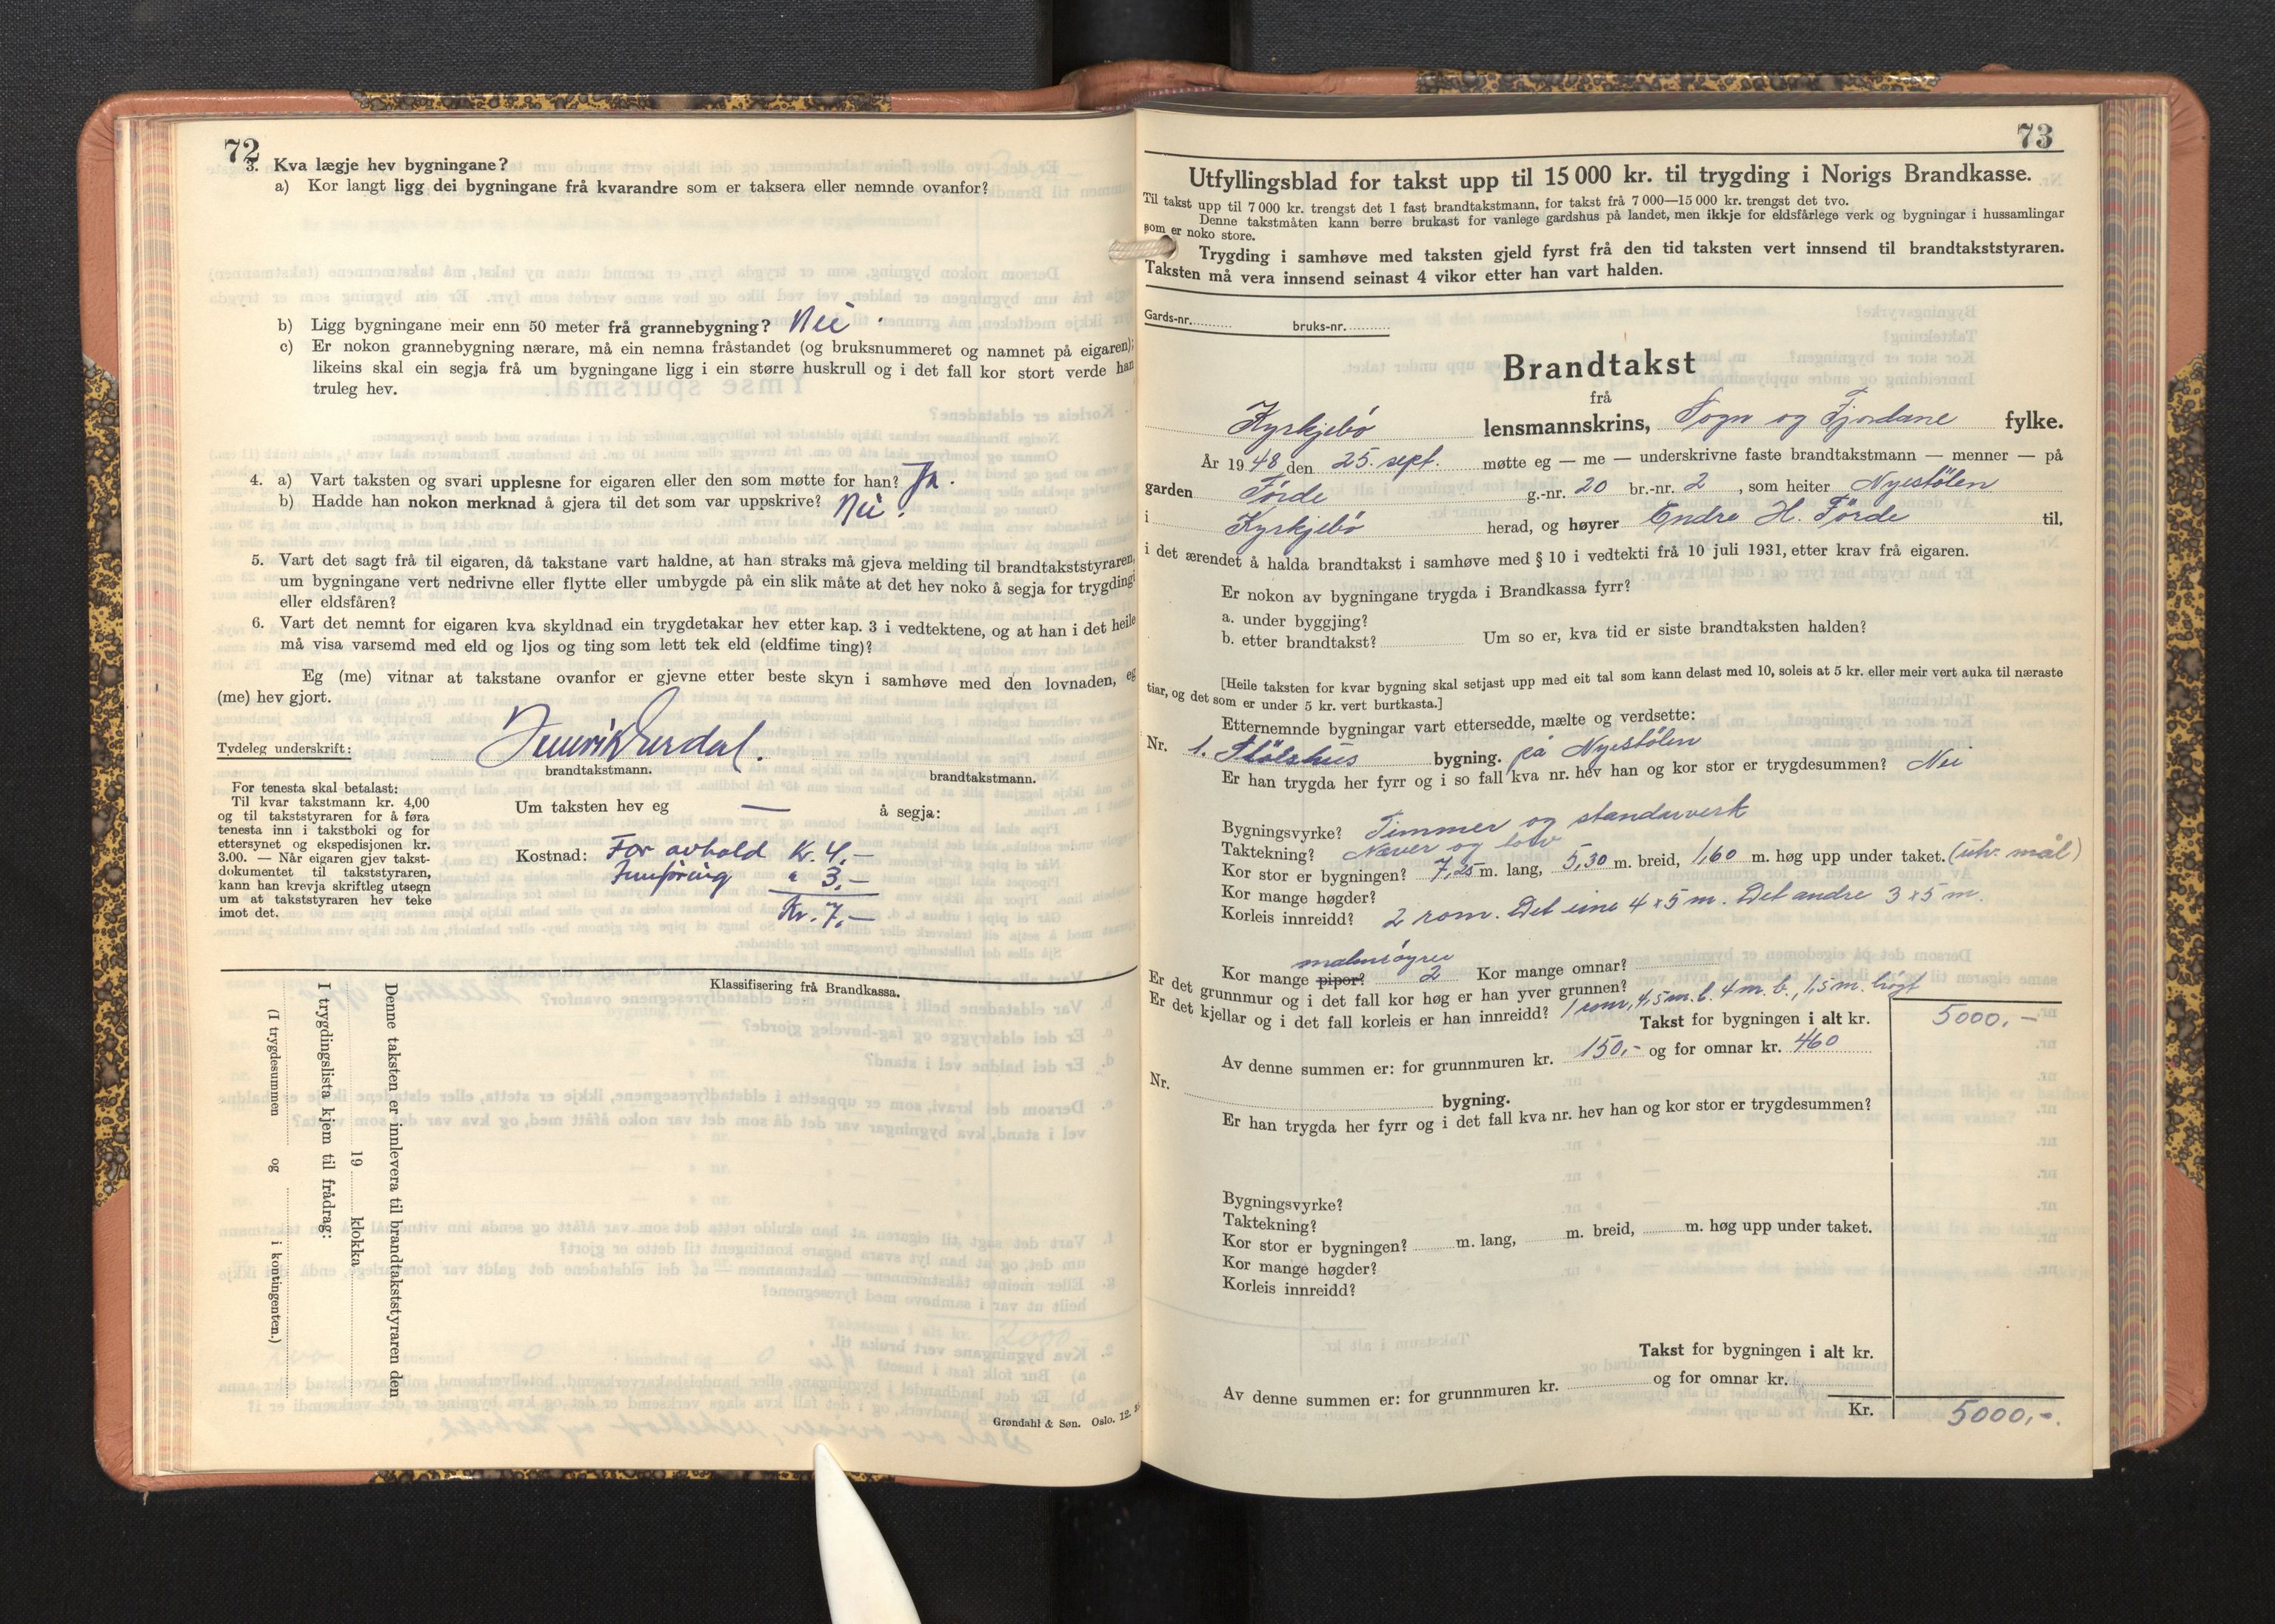 72
3. Kva lægje hev bygningane?
a) Kor langt ligg dei bygningane frå kvarandre som er taksera eller nemnde ovanfor?
b) Ligg bygningane meir enn 50 meter frå grannebygning? Nei
c) Er nokon grannebygning nærare, må ein nemna fråstandet (og bruksnummeret og namnet på eigaren);
likeins skal ein segja frå um bygningane ligg i ein større huskrull og i det fall kor stort verde han
truleg hev.
4. a) Vart taksten og svari upplesne for eigaren eller den som møtte for han? Ja.
b) Hadde han nokon merknad å gjera til det som var uppskrive? Nei.
5. Vart det sagt frå til eigaren, då takstane vart haldne, at han straks må gjeva melding til brandtakststyraren,
um bygningane vert nedrivne eller flytte eller umbygde på ein slik måte at det hev noko å segja for trygdingi
eller eldsfåren?
6. Vart det nemnt for eigaren kva skyldnad ein trygdetakar hev etter kap. 3 i vedtektene, og at han i det heile
må visa varsemd med eld og ljos og ting som lett tek eld (eldfime ting)?
Eg (me) vitnar at takstane ovanfor er gjevne etter beste skyn i samhøve med den lovnaden, eg
(me) hev gjort.
Tydeleg underskrift:
brandtakstmann. brandtakstmann.
For tenesta skal betalast:
Til kvar takstmann kr. 4,00
og til takststyraren for å føra
tenesta inn i takstboki og for
ettersynet og ekspedisjonen kr.
3.00. — Når eigaren gjev takst-
dokumentet til takststyraren,
kann han krevja skriftleg utsegn
um at takststyraren hev teke
imot det.
Um taksten hev eg — å segja:
Kostnad: For avhold Kr. 4,—
Innføring " 3,—
Kr. 7,—
Klassifisering frå Brandkassa.
Denne taksten er innlevera til brandtakststyraren den
19 klokka
I trygdingslista kjem til frådrag:
(I trygdesummen og i kontingenten.)
Grøndahl & Søn. Oslo. 12.
73
Utfyllingsblad for takst upp til 15 000 kr. til trygding i Norigs Brandkasse.
Til takst upp til 7 000 kr. trengst det 1 fast brandtakstmann, for takst frå 7 000—15 000 kr. trengst det tvo.
Denne takstmåten kann berre brukast for vanlege gardshus på landet, men ikkje for eldsfårlege verk og bygningar i hussamlingar
som er noko store.
Trygding i samhøve med taksten gjeld fyrst frå den tid taksten vert innsend til brandtakststyraren.
Taksten må vera innsend seinast 4 vikor etter han vart halden.
Gards-nr. bruks-nr.
Brandtakst
frå
Kyrkjebø lensmannskrins, Sogn og Fjordane fylke.
År 1948 den 25. sept. møtte eg — me — underskrivne faste brandtakstmann — menner — på
garden Förde g.-nr. 20 br.-nr. 2, som heiter Nyestölen
i Kyrkjebø herad, og høyrer Endre H. Förde til,
i det ærendet å halda brandtakst i samhøve med § 10 i vedtekti frå 10 juli 1931, etter krav frå eigaren.
Er nokon av bygningane trygda i Brandkassa fyrr?
a. under byggjing?
b. etter brandtakst? Um so er, kva tid er siste brandtaksten halden?
[Heile taksten for kvar bygning skal setjast upp med eit tal som kann delast med 10, soleis at 5 kr. eller meir vert auka til næraste
tiar, og det som er under 5 kr. vert burtkasta.]
Etternemnde bygningar vart ettersedde, mælte og verdsette:
Nr. 1. Stölshus bygning. på Nyestölen
Er han trygda her fyrr og i so fall kva nr. hev han og kor stor er trygdesummen? Nei
Bygningsvyrke? Timmer og standarverk
Taktekning? Næver og torv
Kor stor er bygningen? 7,25 m. lang, 5,30 m. breid, 1,60 m. høg upp under taket. (utv. mål)
Kor mange høgder?
Korleis innreidd? 2 rom. Det eine 4 x 5 m. Det andre 3 x 5 m.
Kor mange piper? 2 Kor mange omnar?
Er det grunnmur og i det fall kor høg er han yver grunnen?
Er det kjellar og i det fall korleis er han innreidd? 1 rom, 4,5 m. l. 4 m. b., 1,5 m. högt
Takst for bygningen i alt kr. 5000,—
Av denne summen er: for grunnmuren kr. 150,- og for omnar kr. 460
Nr. bygning.
Er han trygda her fyrr og i det fall kva nr. hev han og kor stor er trygdesummen?
Bygningsvyrke?
Taktekning?
Kor stor er bygningen? m. lang, m. breid, m. høg upp under taket.
Kor mange høgder?
Korleis innreidd?
Takst for bygningen i alt kr.
Av denne summen er: for grunnmuren kr. og for omnar kr.
Kr. 5000,-.